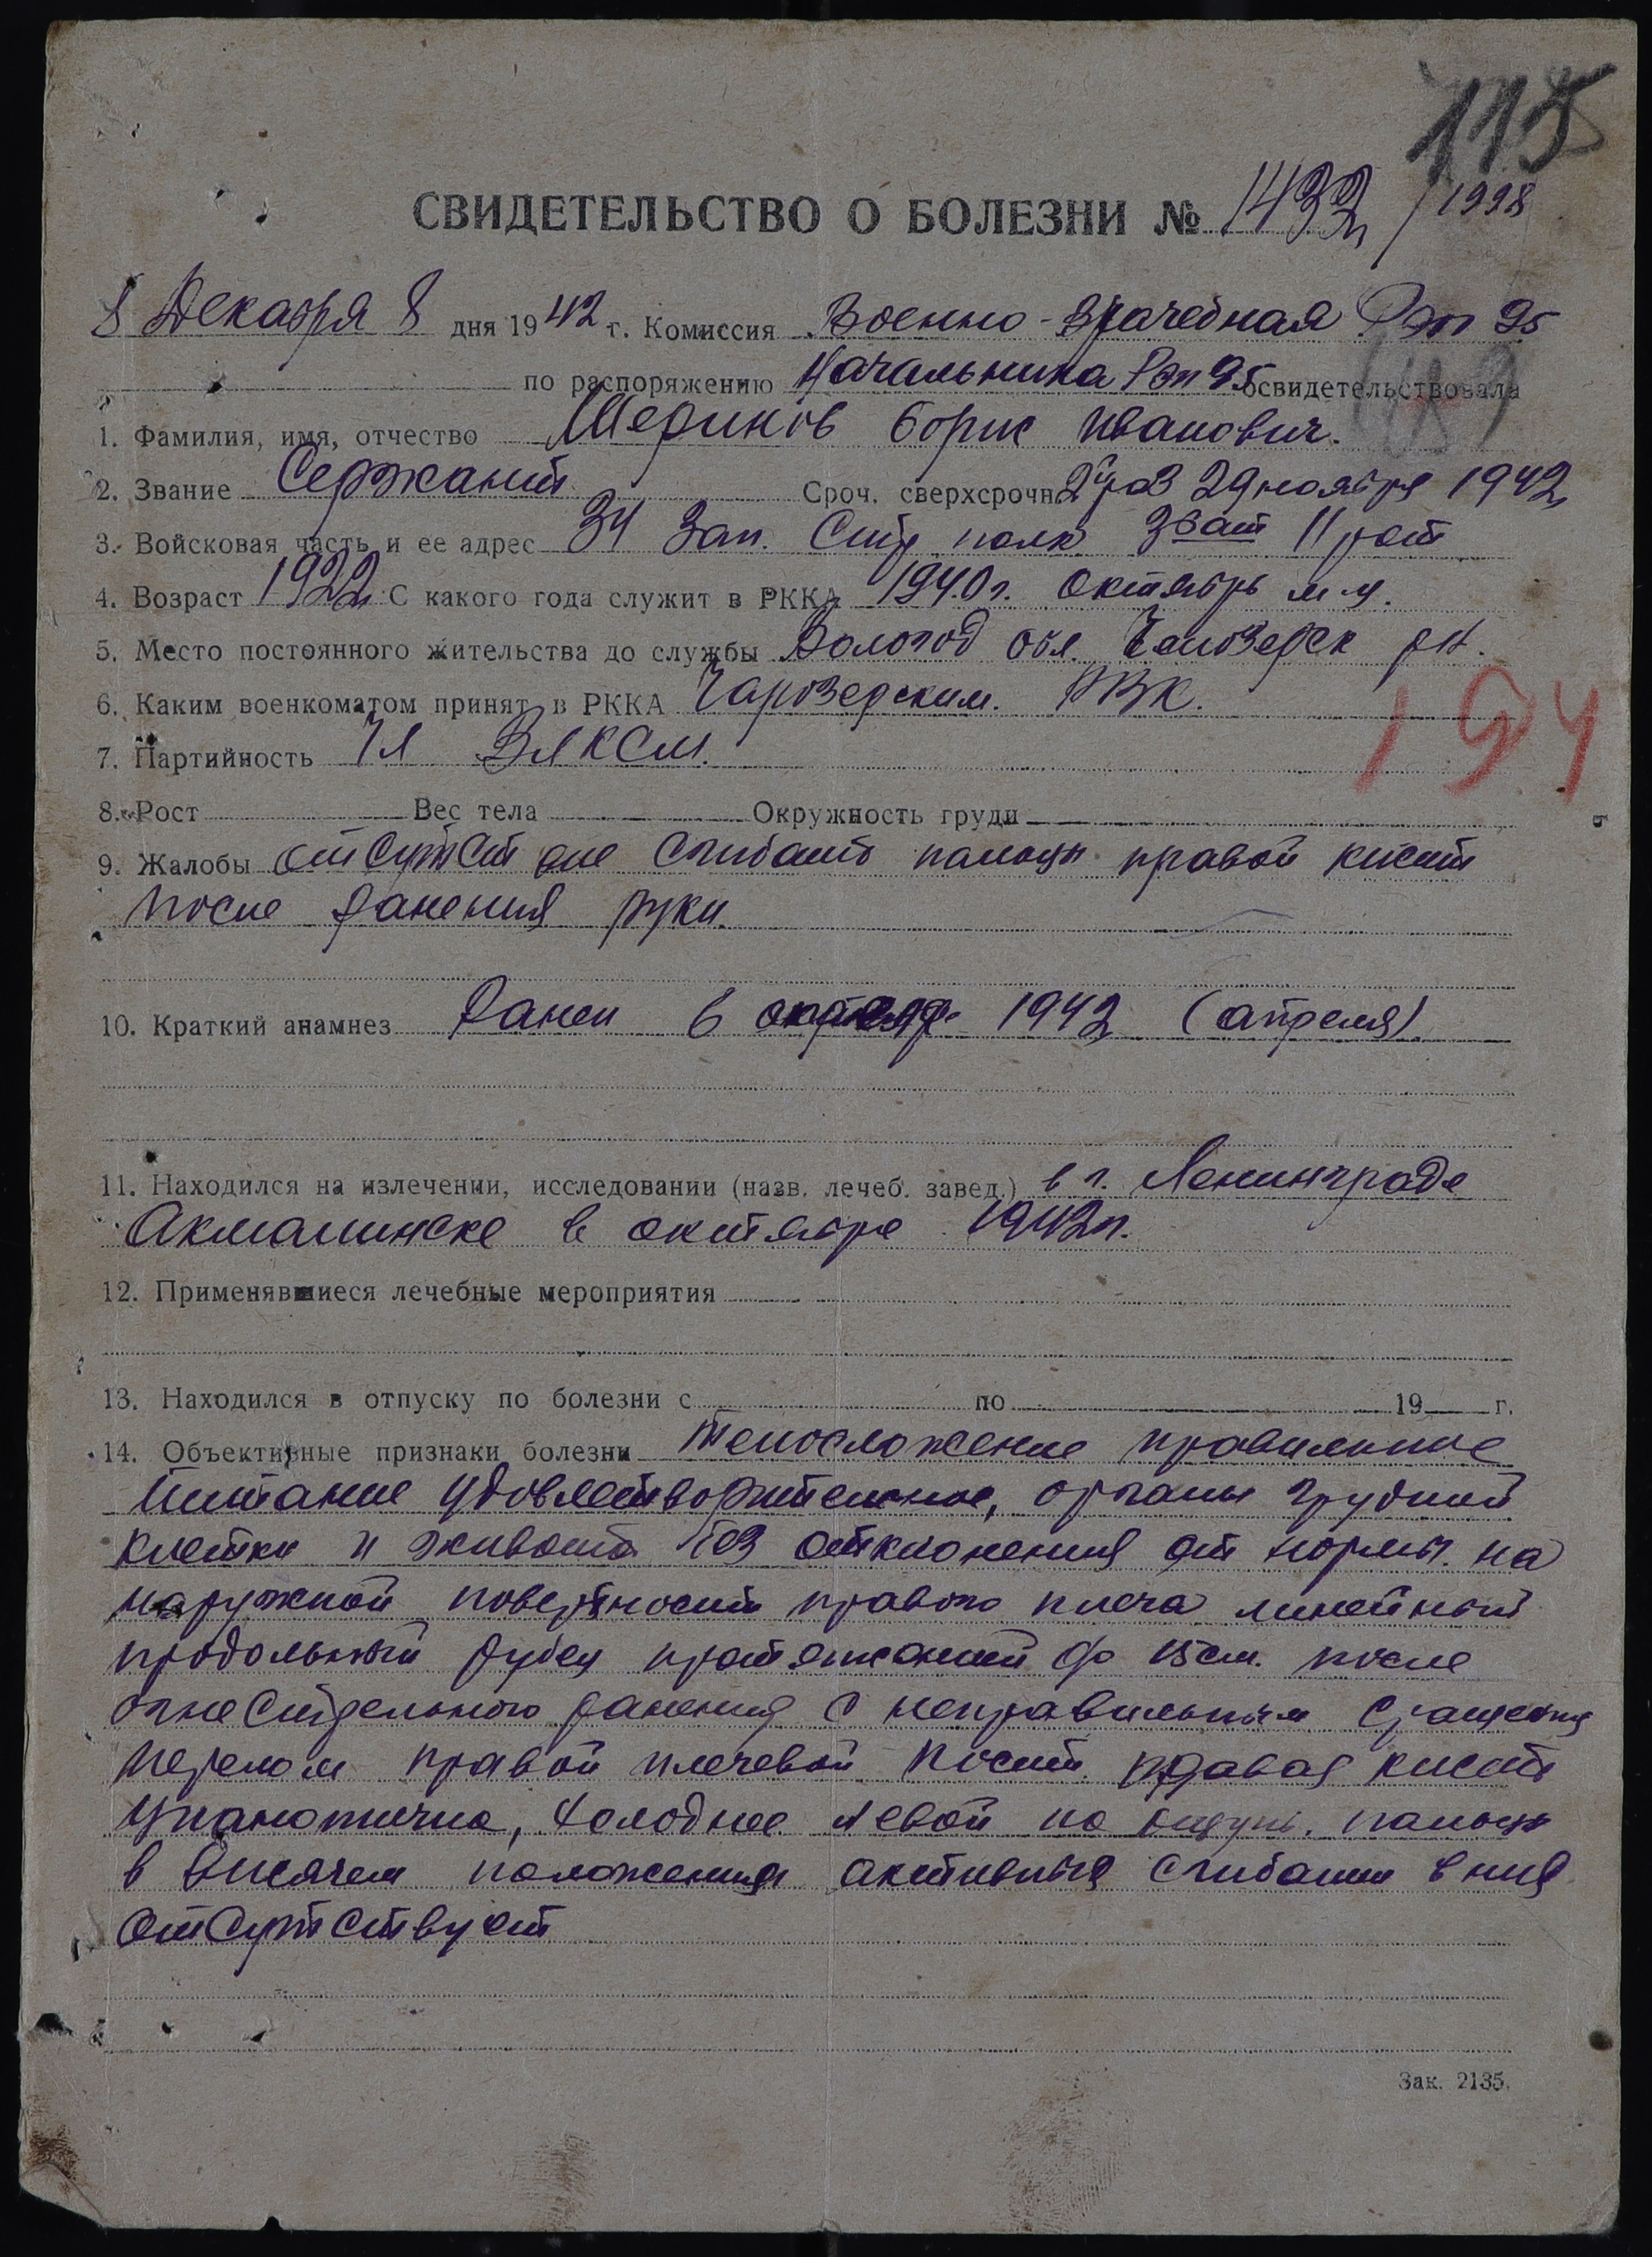 115
СВИДЕТЕЛЬСТВО О БОЛЕЗНИ № 1432 / 1998
8 Декабря 8 дня 1942 г. Комиссия Военно-врачебная Рэп 95
по распоряжению Начальника Рэп 95 освидетельствовала
1. Фамилия, имя, отчество Шериков Борис Иванович.
2. Звание Сержант Сроч. сверхсрочн. 29 ноября 1942
3. Войсковая часть и ее адрес 34 Зап. Стр полк 3 бат 11 рот
4. Возраст 1922 С какого года служит в РККА 1940 г. октябрь м-ц.
5. Место постоянного жительства до службы Вологод обл. рн.
6. Каким военкоматом принят в РККА Чарозерским. РВК.
194
7. Партийность Чл ВЛКСМ.
8. Рост Вес тела Окружность груди
9. Жалобы отсутст сгибать пальцы правой кисти
после ранения руки.
10. Краткий анамнез Ранен 6 1942 (апреля).
11. Находился на излечении, исследовании (назв. лечеб. завед.) в г. Ленинграде
Акмолинске в октябре 1942 г.
12. Применявшиеся лечебные мероприятия
13. Находился в отпуску по болезни с по 19 г.
14. Объективные признаки болезни Телосложение правильное
Питание удовлетворительное, органы грудной
клетки и живота без отклонения от нормы. на
наружной поверхности правого плеча линейный
продольный рубец до 15 см. после
огнестрельного ранения с неправильным сращения
перелом правой плечевой кости. правая кисть
цианотична, холоднее левой на ощупь. пальцы
в висячем положении активные сгибание в них
отсутствует
Зак. 2135.